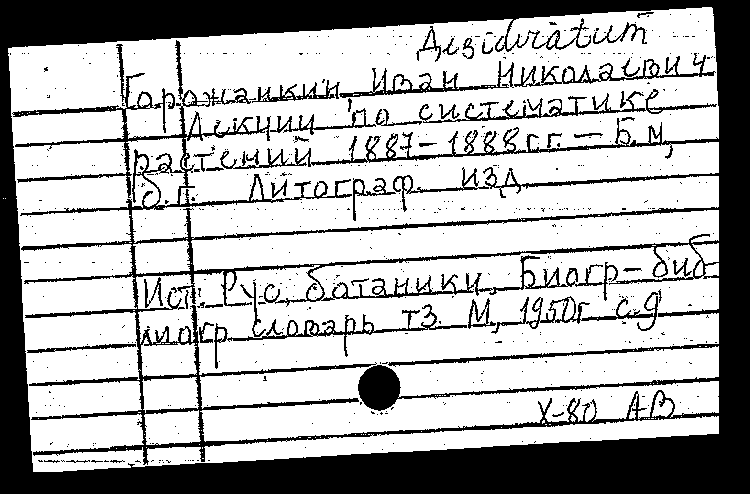 Desideratum
Горожанкин Иван Николаевич
Лекции по систематике
растений 1887-1888 г.г. — Б.м,
б.г. Литограф. изд.
Ист: Рус, ботаники, Биогр-биб
лиогр словарь т3. М, 1950г с.9
X-80 АВ